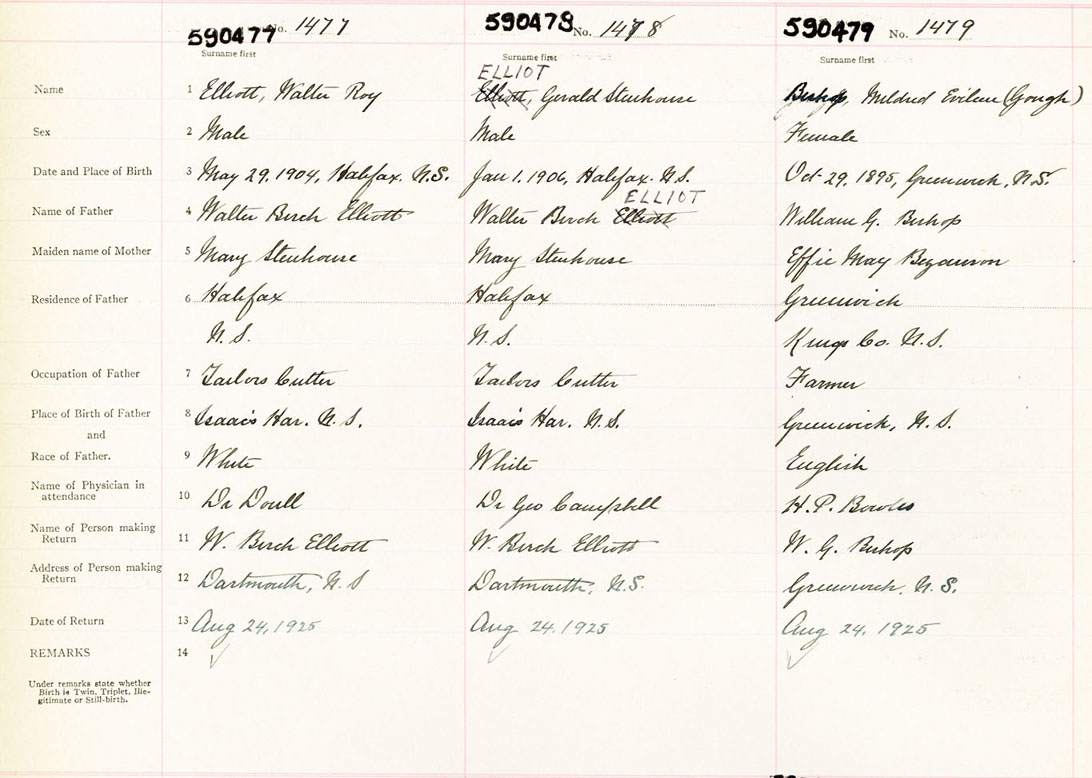 590477 No. 1477 590478 No. 1478 590479 No. 1479
Surname first Surname first Surname first
ELLIOT
Name 1 Elliott, Walter Roy Elliott, Gerald Stenhouse Bishop, Mildred Evileen (Gough)
Sex 2 Male Male Female
Date and Place of Birth 3 May 29, 1904, Halifax. N.S. Jan 1, 1906, Halifax. N.S. Oct 29, 1895, Greenwich, N.S.
ELLIOT
Name of Father 4 Walter Birch Elliott Walter Birch Elliott William G. Bishop
Maiden name of Mother 5 Mary Stenhouse Mary Stenhouse Effie May Bezanson
Residence of Father 6 Halifax Halifax Greenwich
N.S. N.S. Kings Co. N.S.
Occupation of Father 7 Tailors Cutter Tailors Cutter Farmer
Place of Birth of Father 8 Isaac's Har. N.S. Isaac's Har. N.S. Greenwich, N.S.
and
Race of Father. 9 White White English
Name of Physician in
attendance 10 Dr Doull Dr Geo Campbell H. P. Bowles
Name of Person making
Return 11 W. Birch Elliott W. Birch Elliott W. G. Bishop
Address of Person making
Return 12 Dartmouth, N.S Dartmouth, N.S. Greenwich, N.S.
Date of Return 13 Aug 24, 1925 Aug 24, 1925 Aug 24, 1925
REMARKS 14
Under remarks state whether
Birth is Twin, Triplet, Ille-
gitimate or Still-birth.